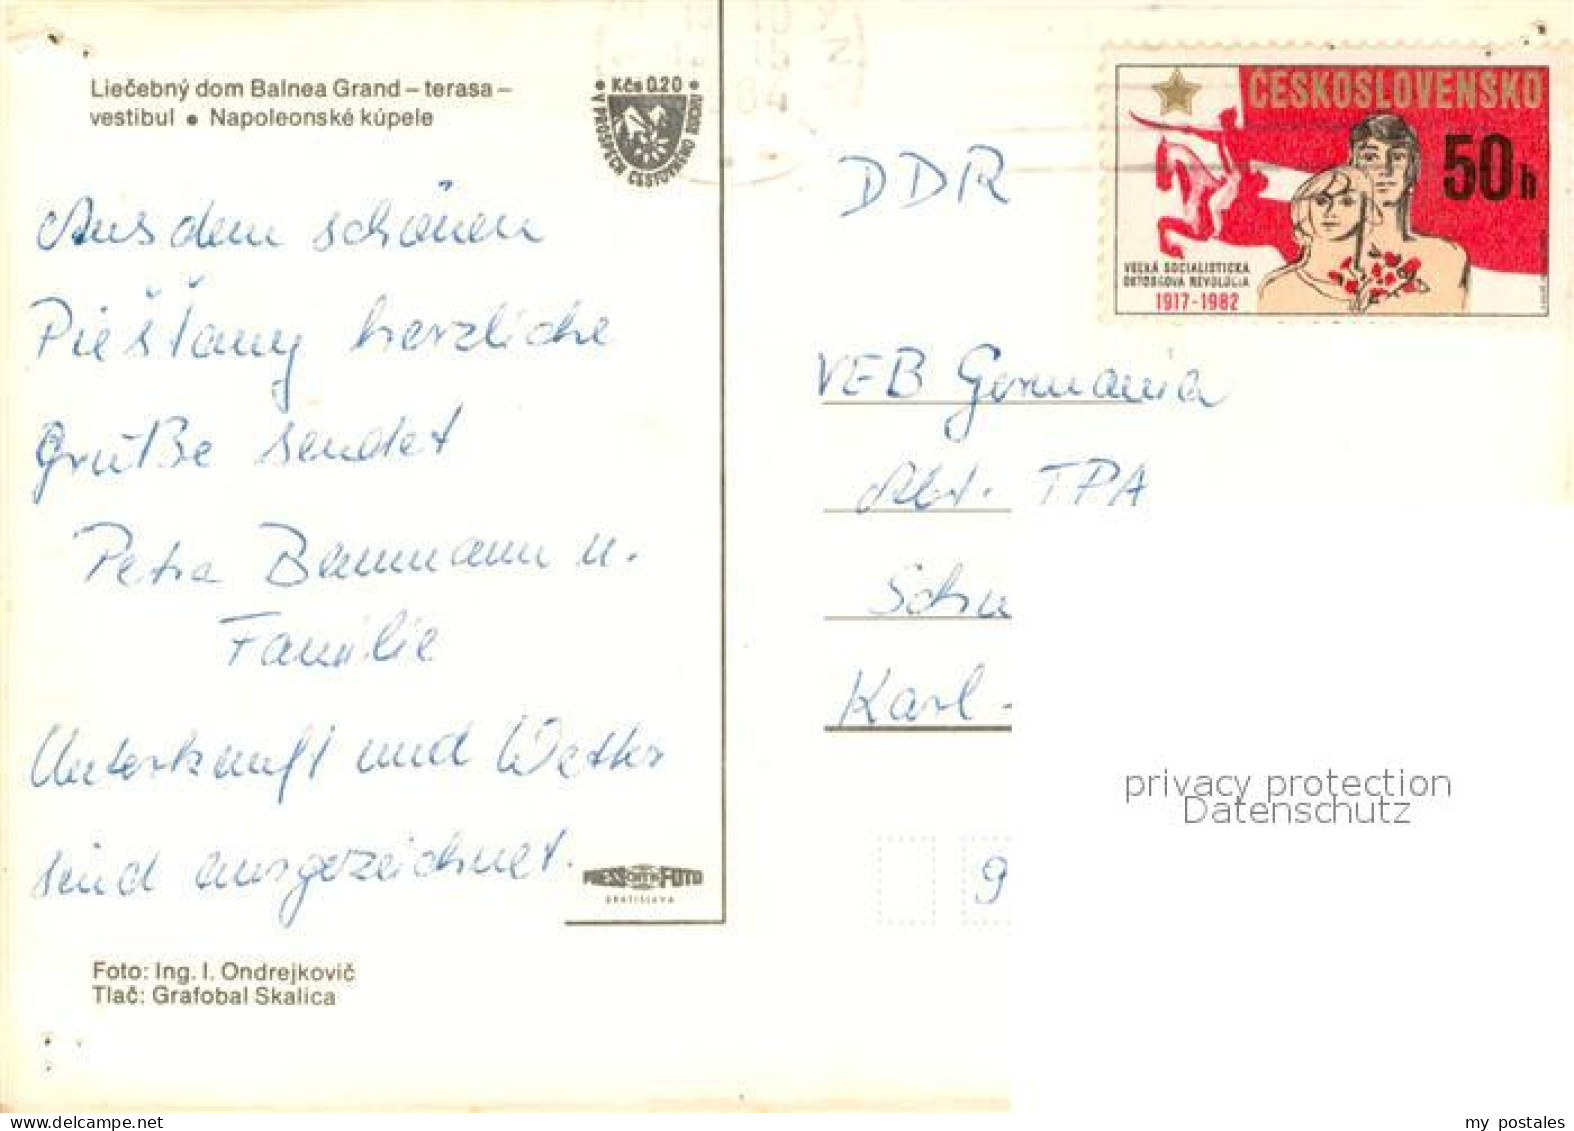 Liečebný dom Balnea Grand – terasa –
vestibul • Napoleonské kúpele
Kčs 0.20
V PROSPECH CESTOVNÉHO RUCHU
Aus dem schönen
Piešťany herzliche
Grüße sendet
Petra Baumann u.
Familie
Unterkunft und Wetter
sind ausgezeichnet.
PRESSFOTO
BRATISLAVA
Foto: Ing. I. Ondrejkovič
Tlač: Grafobal Skalica
ČESKOSLOVENSKO
50h
VEĽKÁ SOCIALISTICKÁ
OKTÓBROVÁ REVOLÚCIA
1917-1982
DDR
VEB Germania
Abt. TPA
Schu
Karl-
9
privacy protection
Datenschutz
my postales